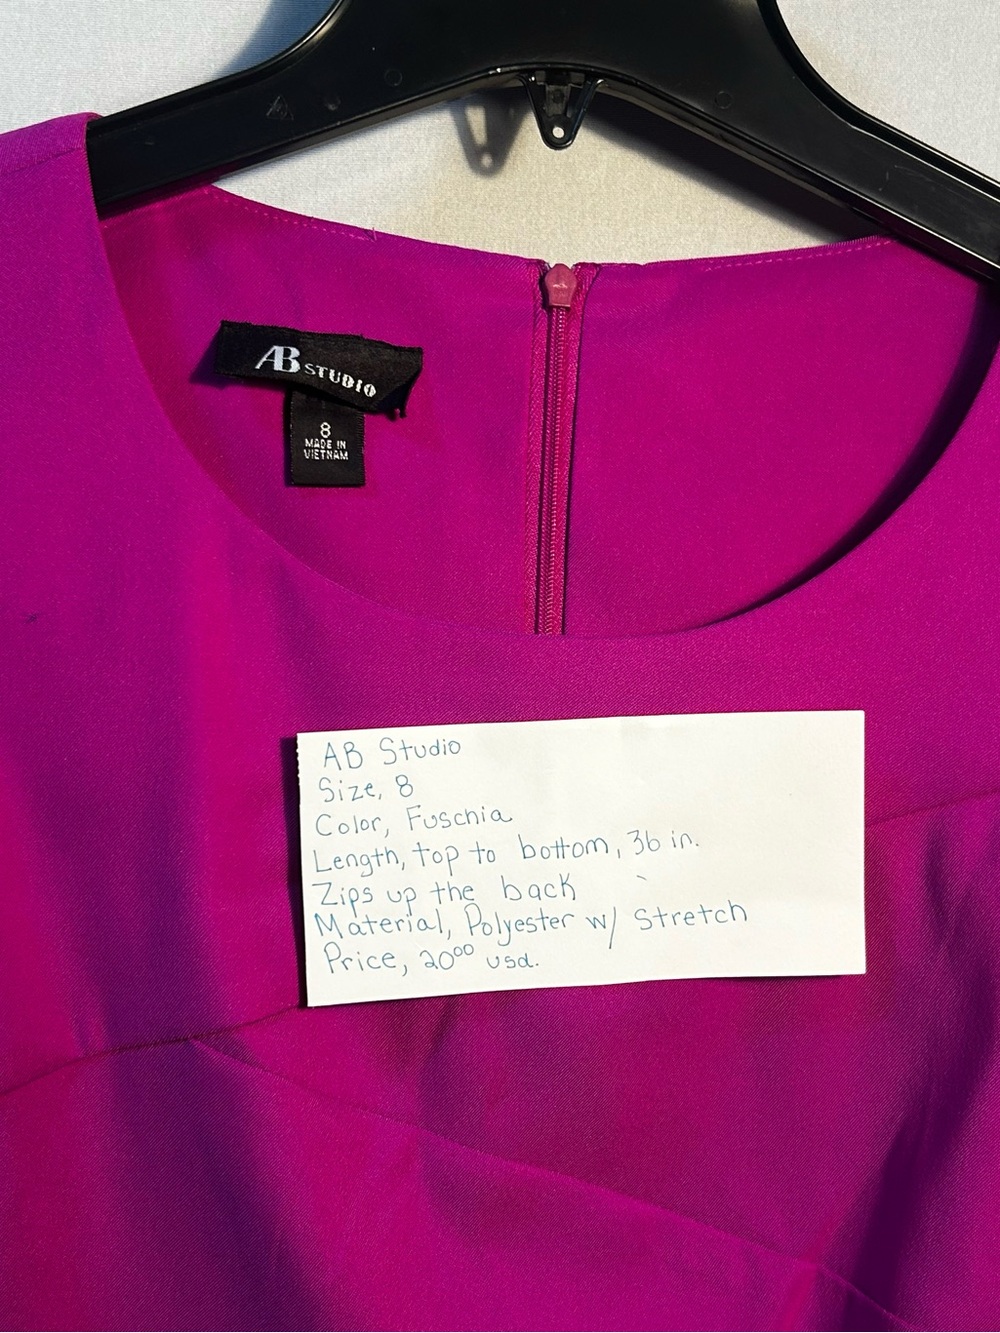 AB STUDIO
8
MADE IN
VIETNAM
AB Studio
Size, 8
Color, Fuschia
Length, top to bottom, 36 in.
Zips up the back
Material, Polyester w/ Stretch
Price, 20⁰⁰ usd.